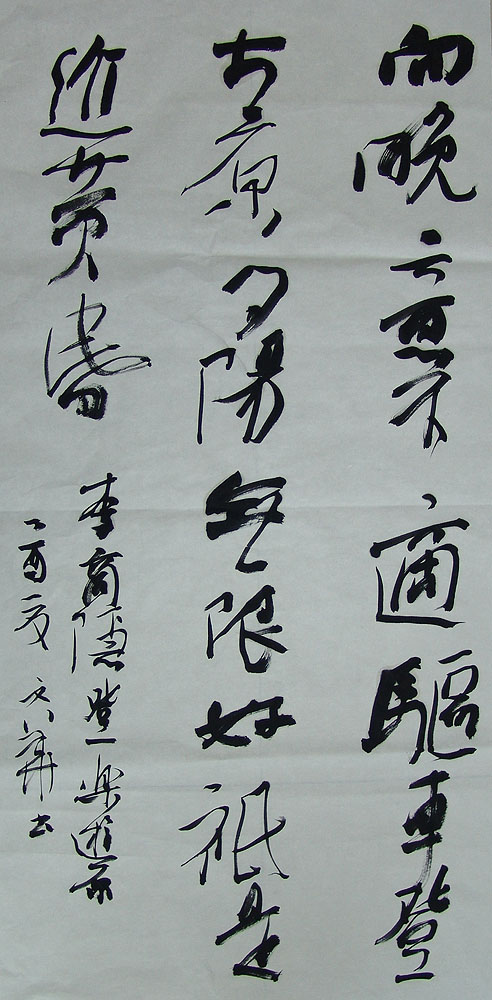 向晚意不適驅車登
古原夕陽無限好祇是
近黄昏
李商隱登樂遊原
乙酉夏文书